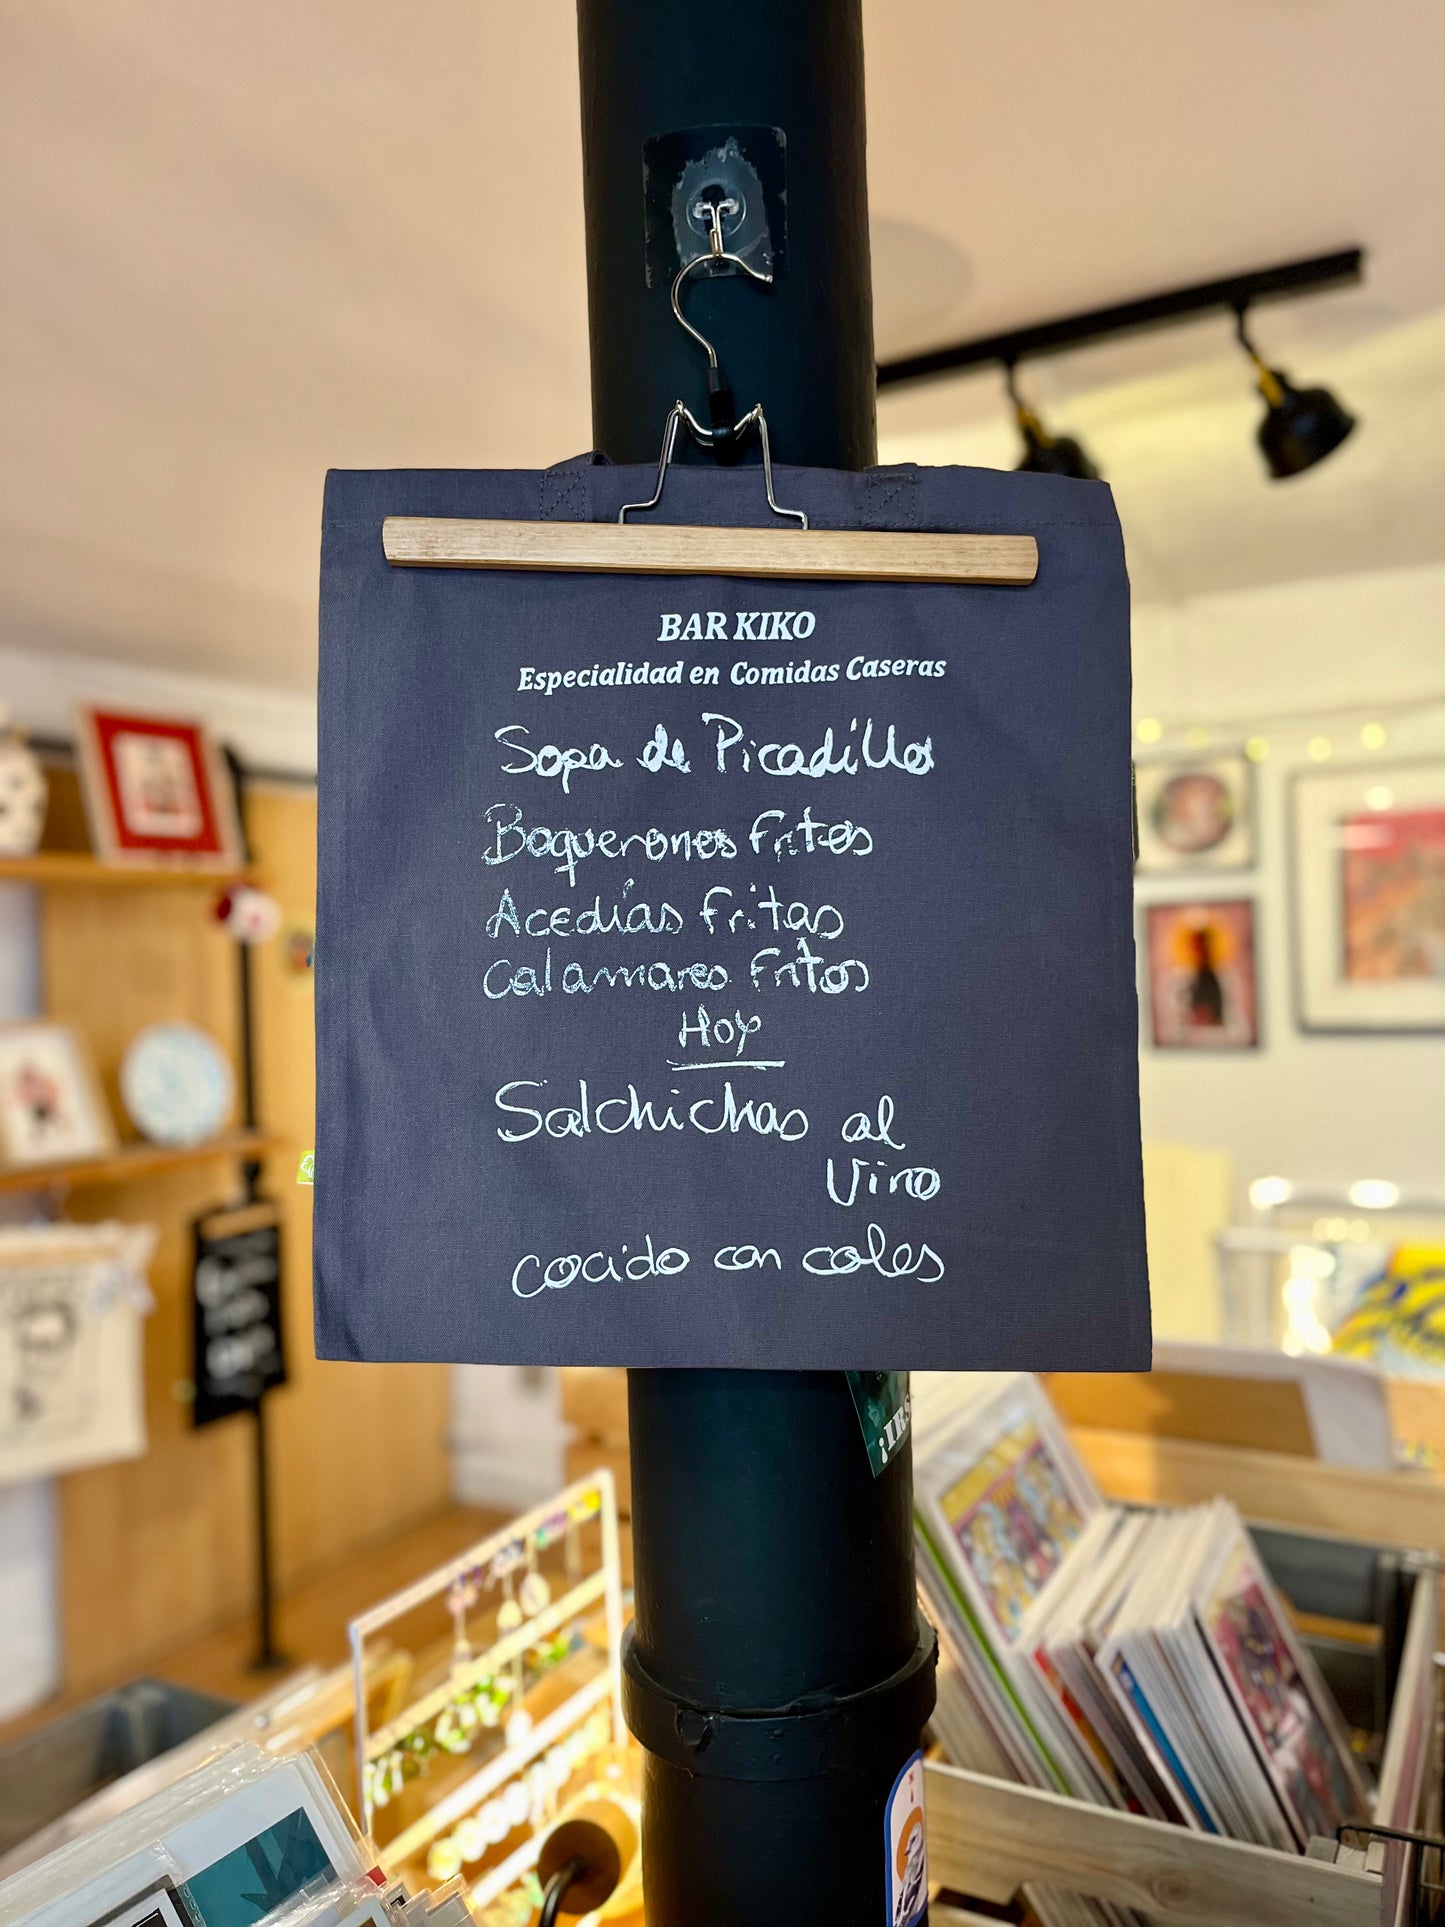 BAR KIKO
Especialidad en Comidas Caseras
Sopa de Picadillo
Boquerones fritos
Acedías fritas
calamares fritos
Hoy
Salchichas al
Vino
cocido con coles